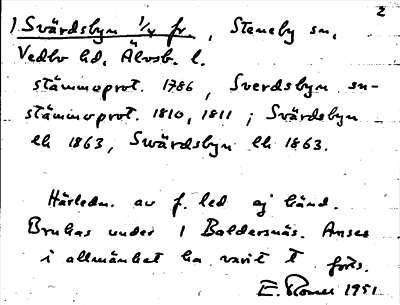 2
1. Svärdsbyn 1/4 fr., Steneby sn,
Vedbo hd, Älvsb. l.
stämmoprot. 1786, Sverdsbyn sn-
stämmoprot. 1810, 1811; Svärdsbyn
ek 1863, Swärdsbyn ek 1863.
Härledn. av f. led ej känd.
Brukas under 1 Baldersnäs. Anses
i allmänhet ha varit t förs.
E. Romer 1951